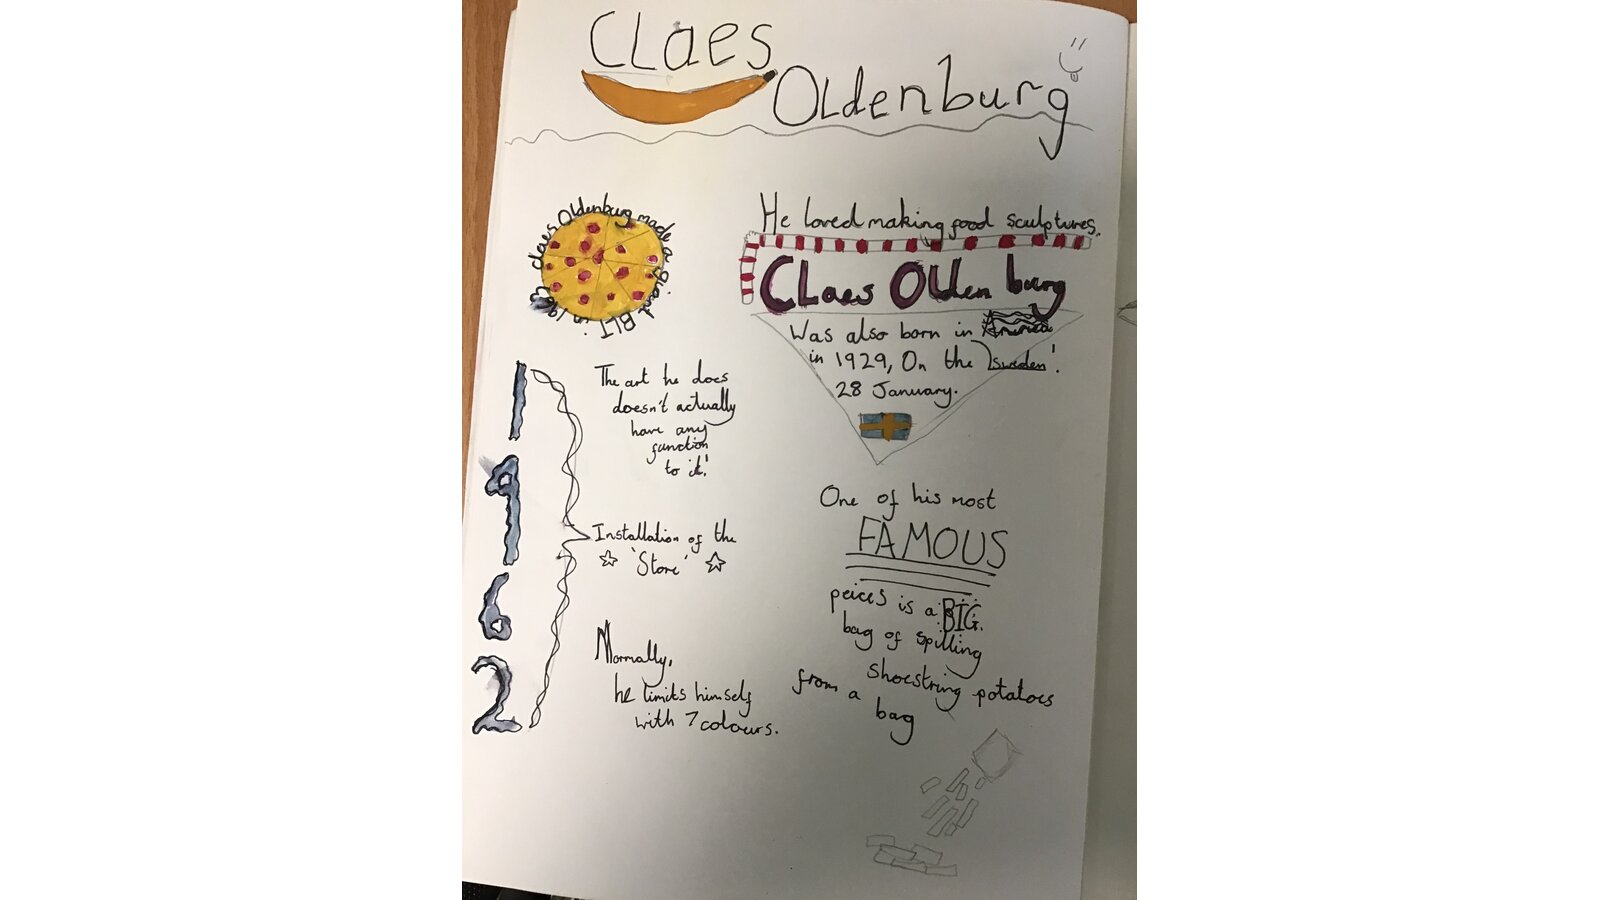 CLaes
OLdenburg
claes Oldenburg made a giant BLT in
He loved making food sculptures.
CLaes OLdenburg
Was also born in America
in 1929, On the Sweden!
28 January.
1962
The art he does
doesn't actually
have any
function
to it!
Installation of the
'Store'
Normally,
he limits himself
with 7 colours.
One of his most
FAMOUS
peices is a BIG.
bag of spilling
shoestring potatoes
from a
bag